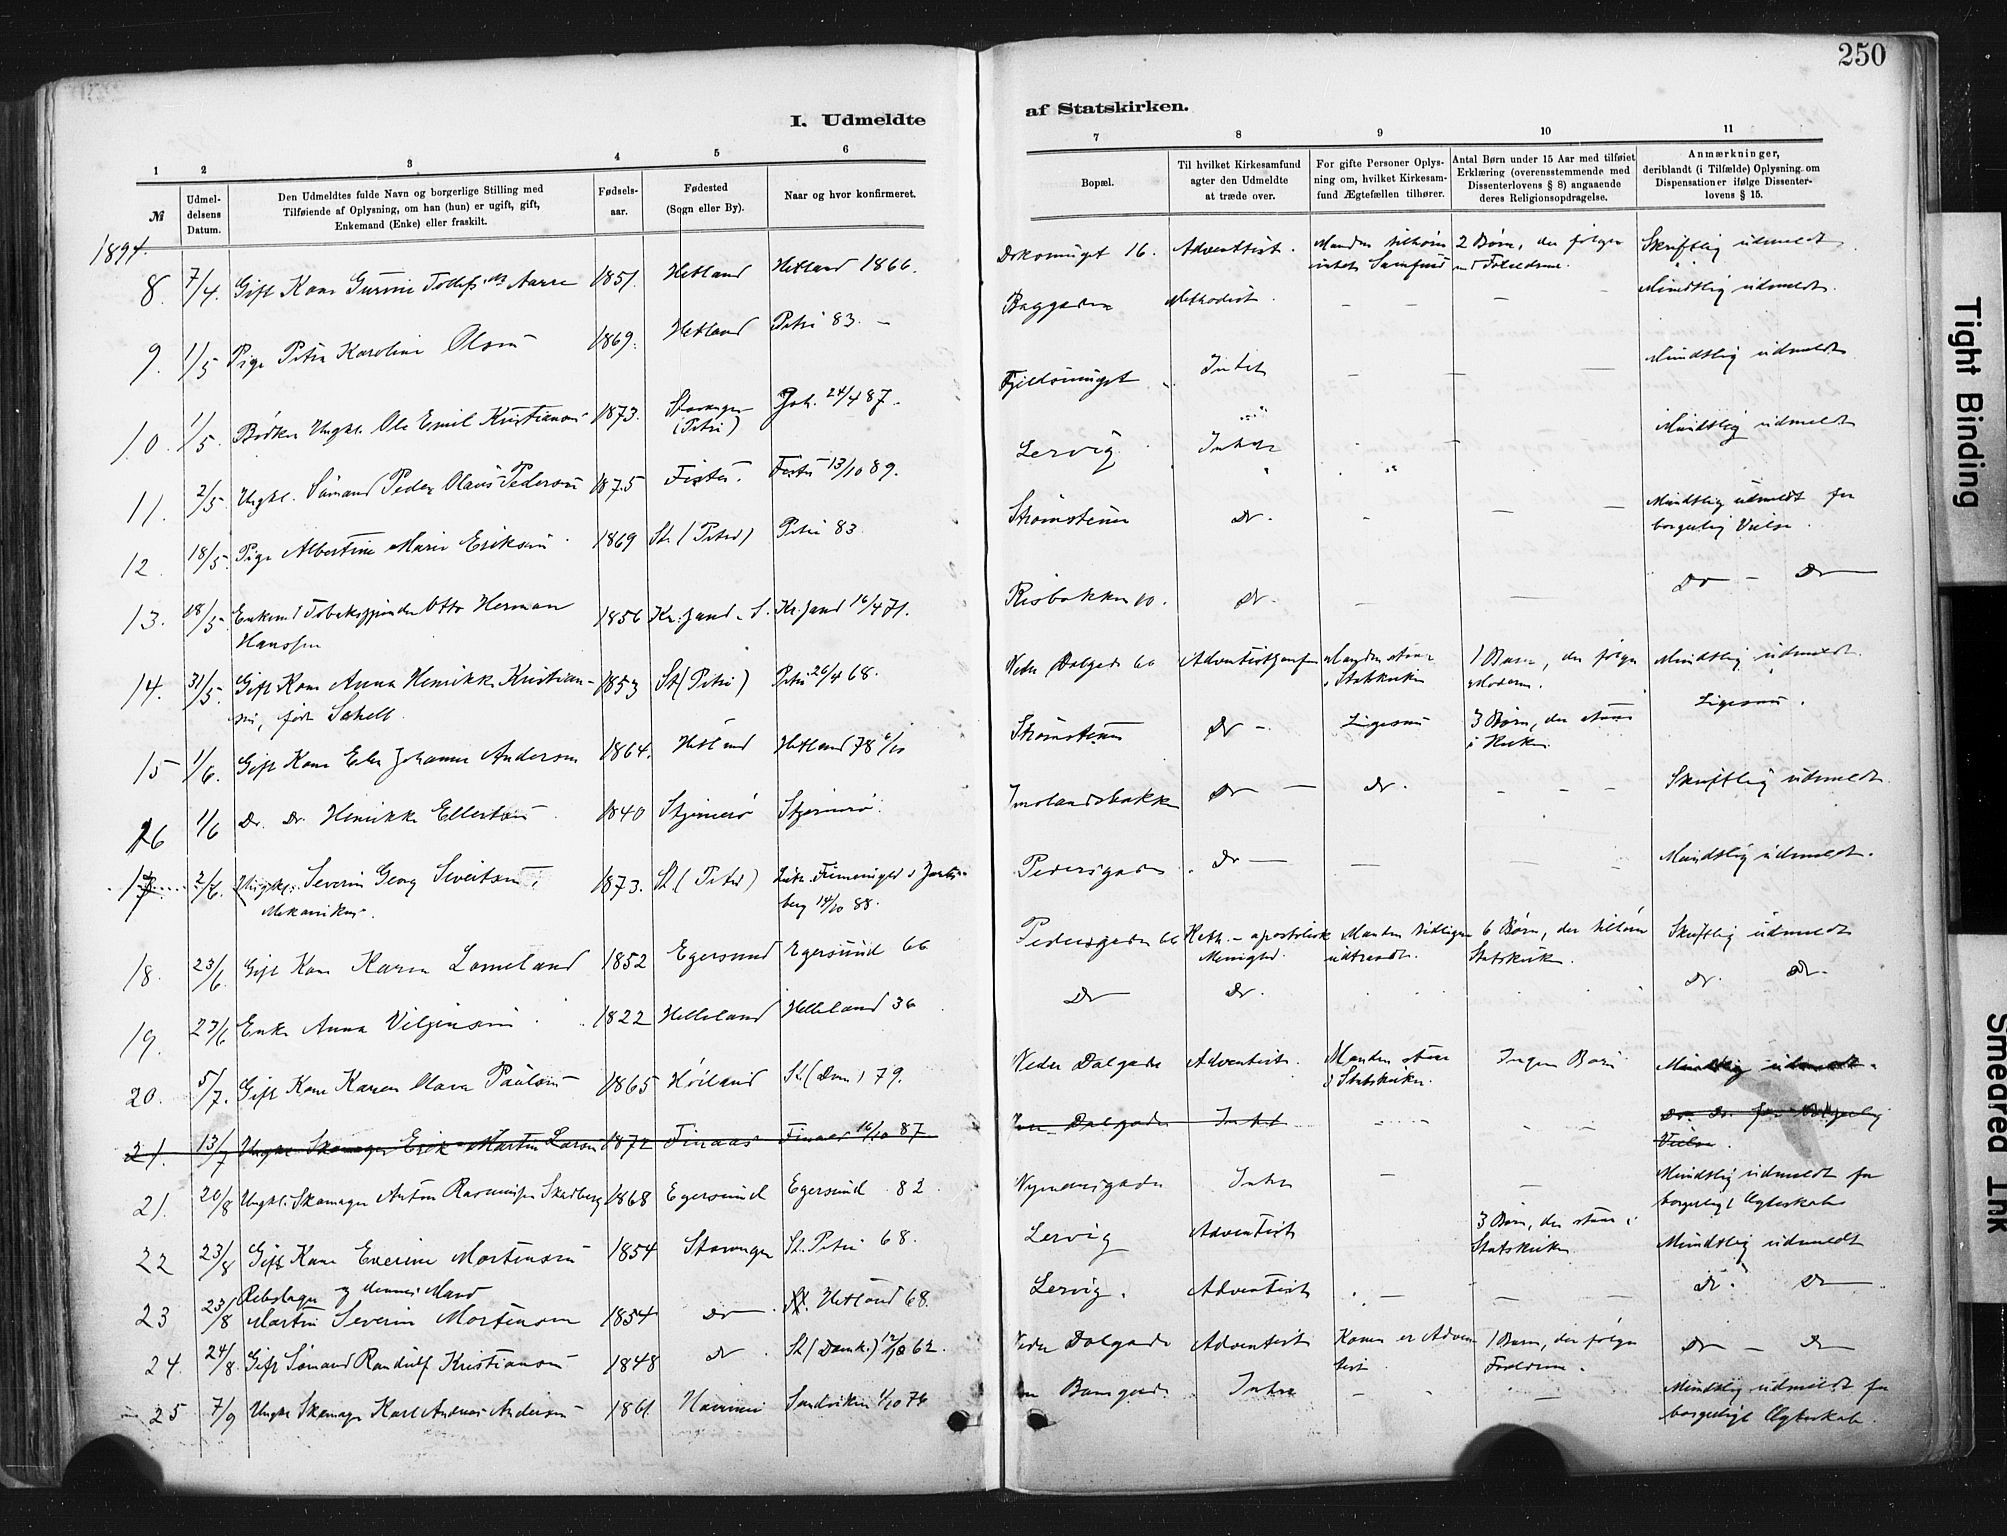 250
I. Udmeldte af Statskirken.
1 2 3 4 5 6 7 8 9 10 11
№
Udmeldelsens Datum.
Den Udmeldtes fulde Navn og borgerlige Stilling med Tilføiende af Oplysning, om han (hun) er ugift, gift, Enkemand (Enke) eller fraskilt.
Fødselsaar.
Fødested (Sogn eller By).
Naar og hvor konfirmeret.
Bopæl.
Til hvilket Kirkesamfund agter den Udmeldte at træde over.
For gifte Personer Oplysning om, hvilket Kirkesamfund Ægtefællen tilhører.
Antal Børn under 15 Aar med tilføiet Erklæring (overensstemmende med Dissenterlovens § 8) angaaende deres Religionsopdragelse.
Anmærkninger, deriblandt (i Tilfælde) Oplysning om Dispensationer ifølge Dissenterlovens § 15.
1894.
8. 7/4. Gift Kone Gurine Aarre 1851. Hetland Hetland 1866. 16. Adventist. Manden tilhører intet Samfund 2 Børn, der følger Forældrene. Skriftlig udmeldt
9. 1/5 Pige Petra Karoline Olsen 1869. Hetland Petri 83. – Baggaden Methodist. – – – – Mundtlig udmeldt.
10. 1/5. Bødker Ungkl. Ole Emil Kristiansen 1873. Stavanger (Petri) Joh. 24/4 87. Fjeldsmuget Intet – – Mundtlig udmeldt
11. 2/5. Ungkl. Sømand Peder Olaus Pedersen 1875 Fister. Fister 13/10 89. Lervig Intet Mundtlig udmeldt
12. 18/5. Pige Albertine Marie Eriksen 1869 St. (Petri) Petri 83. Strømsteen Do. – – – Mundtlig udmeldt for borgerlig Vielse.
13. 18/5. Enkem. Otto Herman Hanssen 1856 Kr.sand. S. Kr.sand 16/4 71. Risbakken 10. Do. – – Do – Do
14. 31/5. Gift Kone Anna Henrikke Kristiansen, født Sahell. 1853 St (Petri) Petri 26/4 68. Nedre Dalgade 60 Manden staar i Statskirken 1 Barn, der følger Moderen. Mundtlig udmeldt.
15 1/6. Gift Kone Johanne Andersen 1864. Hetland Hetland 78 6/10 Strømsteen Do – Ligesaa 3 Børn, der staar i Kirken. Ligesaa.
16 1/6 Do. Do. Henrikke Ellertsen 1840 Stjernerø Stjernerø. Do – Do. – – – Skriftlig udmeldt
17. 2/6. Ungkl. Severin Georg Sivertsen, Mekanikus. 1873. St. (Petri) Luth. Frimenighed i Jarlsberg 14/10 88. Pedersgaden Do – – – Mundtlig udmeldt.
18. 23/6. Gift Kone Karen Lomeland 1852 Egersund Egersund 66 Pedersgaden 66 Kath. – apostolisk Menighed. Manden tidligere udtraadt. 6 Børn, der tilhører Statskirken. Skriftlig udmeldt
19. 23/6 Enke Anna 1822 Helleland Helleland 36 Do Do. Do. Do.
20. 5/7. Gift Kone Karen Olava Paulsen 1865 Høiland St. (Dom.) 79. Nedre Dalgade Adventist. Manden staar i Statskirken. Ingen Børn Mundtlig udmeldt.
21. 13/7 Ungkl. Skomager Erik Martin Larsen 1872 Finaas Finaas 16/10 87 Dalgade Intet Do. Do. for borgerlig Vielse.
21. 20/8 Ungkl. Skomager Anton Rasmussen Skadberg 1868 Egersund Egersund 82 Nymandsgaden Intet – – Mundtlig udmeldt for borgerligt Ægteskab
22 23/8 Gift Kone Everine Mortensen 1854 Stavanger St. Petri 68. Lervig Adventist 3 Børn, der staar i Statskirken Mundtlig udmeldt
23 23/8 Rebslager og hennes Mand Martin Severin Mortensen 1854 Do. Hetland 68. Lervig. Adventist – – – Do. Do
24. 24/8. Gift Sømand Randulf Kristiansen 1848 Do St. (Domk.) 12/10 62. Nedre Dalgade Adventist Konen er Adventist 1 Barn, der følger Forældrene. Do – Do
25 7/9 Ungkl. Skomager Karl Andreas Andersen 1861. Sandviken 1/10 76 Intet – – Mundtlig udmeldt for borgerligt Ægteskab.
Tight Binding
Smeared Ink